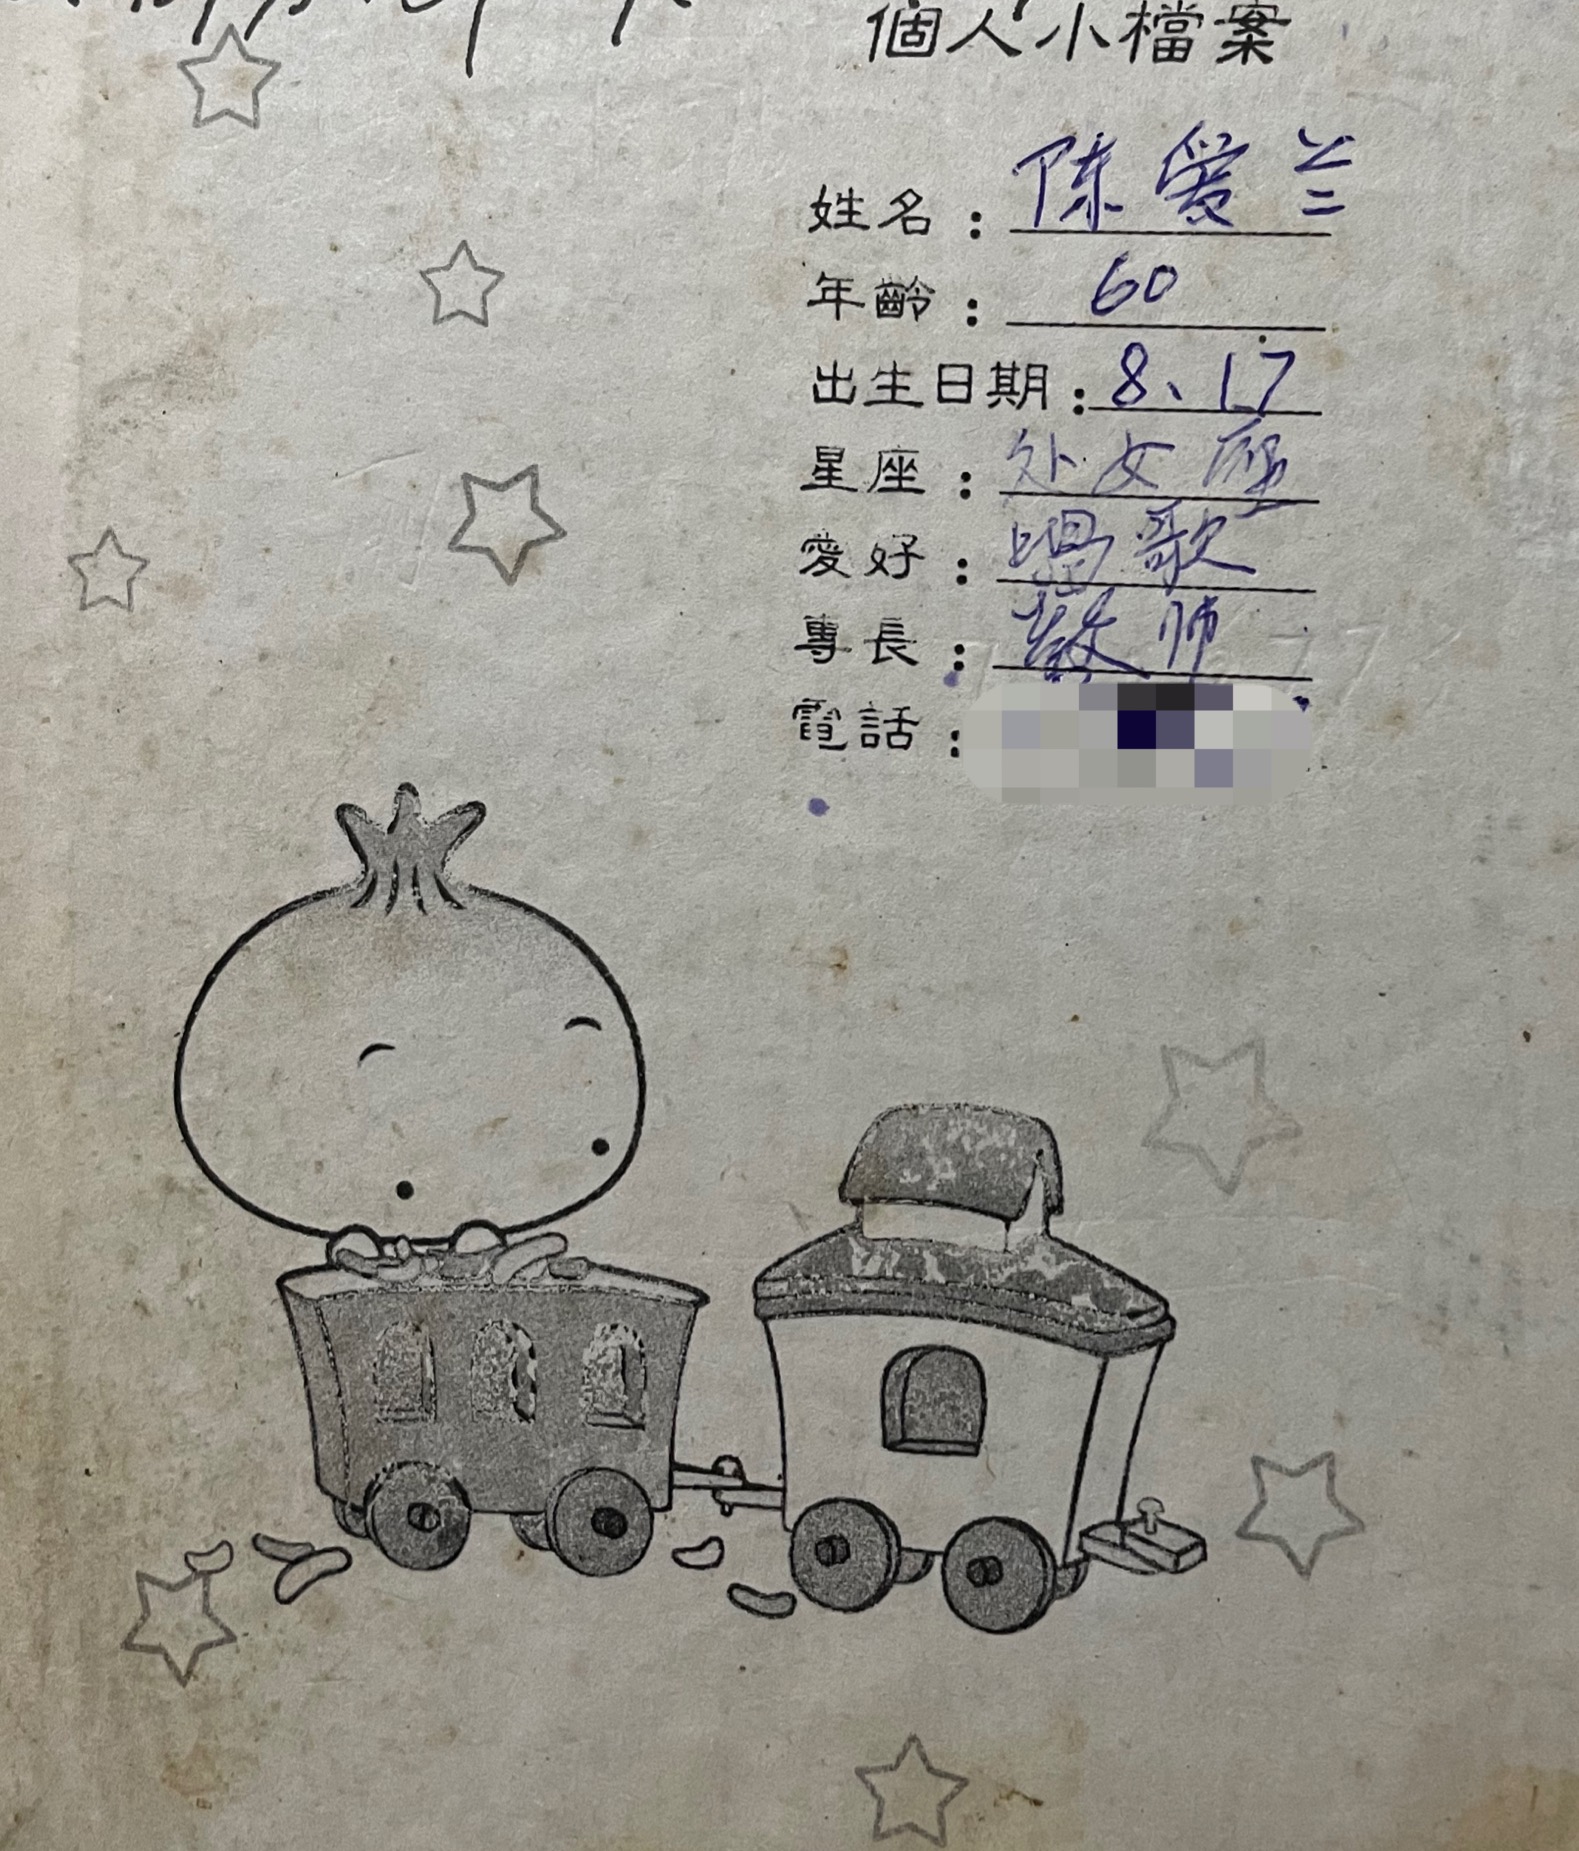 個人小檔案
姓名：陈爱兰
年齡：60
出生日期：8、17
星座：处女座
愛好：唱歌
專長：教师
電話：